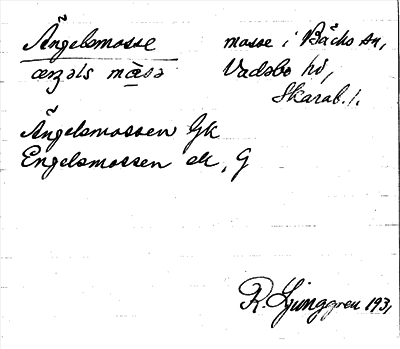 Ängelsmosse mosse i Bäcks sn,
æŋəls mɑ̀sə Vadsbo hd,
Skarab. l.
Ängelsmossen Gk
Engelsmossen ek, G
R. Ljunggren 193,